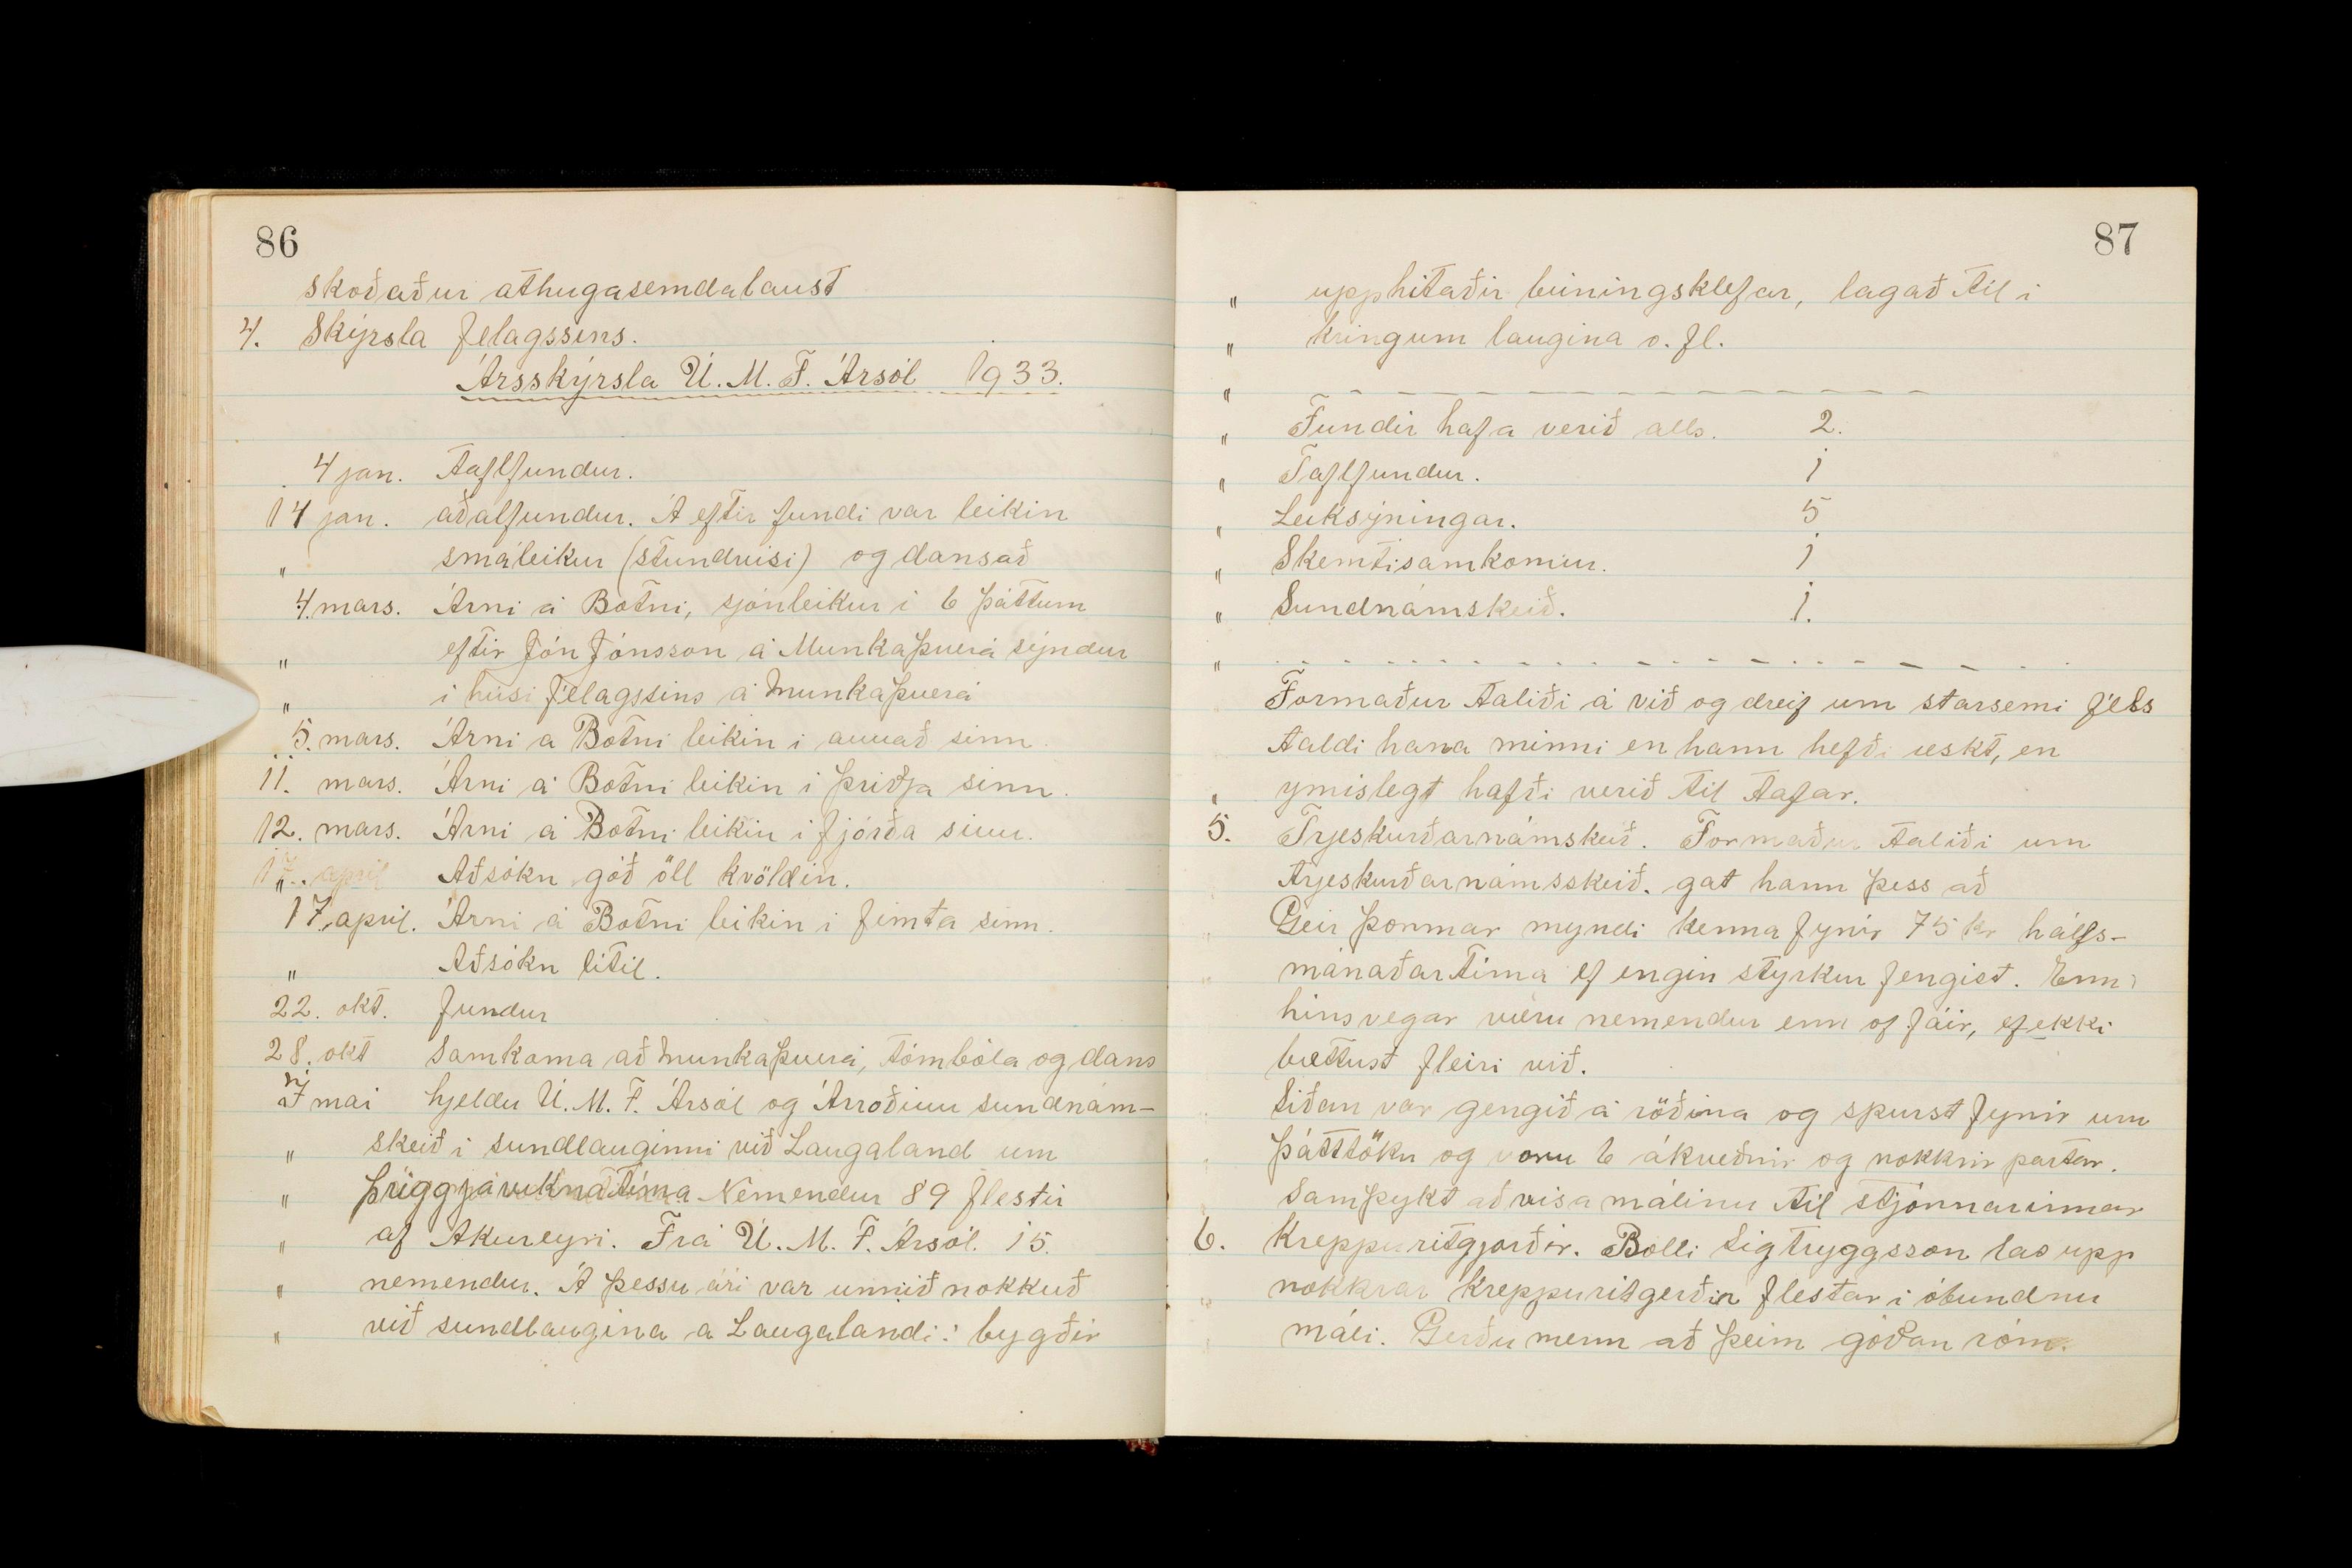 86
skoðaður athugasemdalaust
4. Skýrsla fjelagssins.
Ársskýrsla U.M.F. Ársól 1933.
4 jan. Taflfundur.
14 jan. aðalfundur. Á eftir fundi var leikin
" smáleikur (stundvísi) og dansað
4. mars. Árni á Botni, sjónleikur í 6 þáttum
" eftir Jón Jónsson á Munkaþverá sýndur
" í húsi fjelagssins á Munkaþverá
5. mars. Árni a Botni leikin í annað sinn
11. mars. Árni á Botni leikin í þriðja sinn.
12. mars. Árni á Botni leikin í fjórða sinn.
17. apríl " Aðsókn góð öll kvöldin.
17. apríl. Árni á Botni leikin í fimta sinn.
" Aðsókn lítil.
22. okt. fundur
28. okt Samkoma að Munkaþverá, tómbóla og dans
7 mai hjeldu U.M.F. Ársól og Árroðinn sundnám-
" skeið í sundlauginni við Laugaland um
" þriggja vikna tíma Nemendur 89 flestir
" af Akureyri. Frá U.M.F. Ársól. 15.
" nemendur. Á þessu ári var unnið nokkuð
" við sundlaugina a Laugalandi: bygðir
87
" upphitaðir búningsklefar, lagað til í
" kringum laugina o.fl.
"
" Fundir hafa verið alls. 2.
" Taflfundur. 1
" Leiksýningar. 5
" Skemtisamkomur. 1
" Sundnámskeið. 1.
"
Formaður talaði á við og dreif um starsemi fjels
taldi hana minni en hann hefði æskt, en
" ymislegt hafði verið til tafar.
5. Trjeskurðarnámskeið. Formaður talaði um
trjeskurðarnámsskeið. gat hann þess að
Geir Þormar myndi kenna fyrir 75 kr hálfs-
mánaðar tíma ef engin styrkur fengist. Enn
hinsvegar væru nemendur enn of fáir, ef ekki
bættust fleiri við.
Síðan var gengið á röðina og spurst fyrir um
þátttöku og voru 6 ákveðnir og nokkrir partar.
Samþykt að vísa málinu til stjórnarinnar
6. Kreppuritgjorðir. Bolli Sigtryggsson las upp
nokkrar kreppuritgerðir flestar í óbundnu
máli. Gerðu menn að þeim góðan róm.